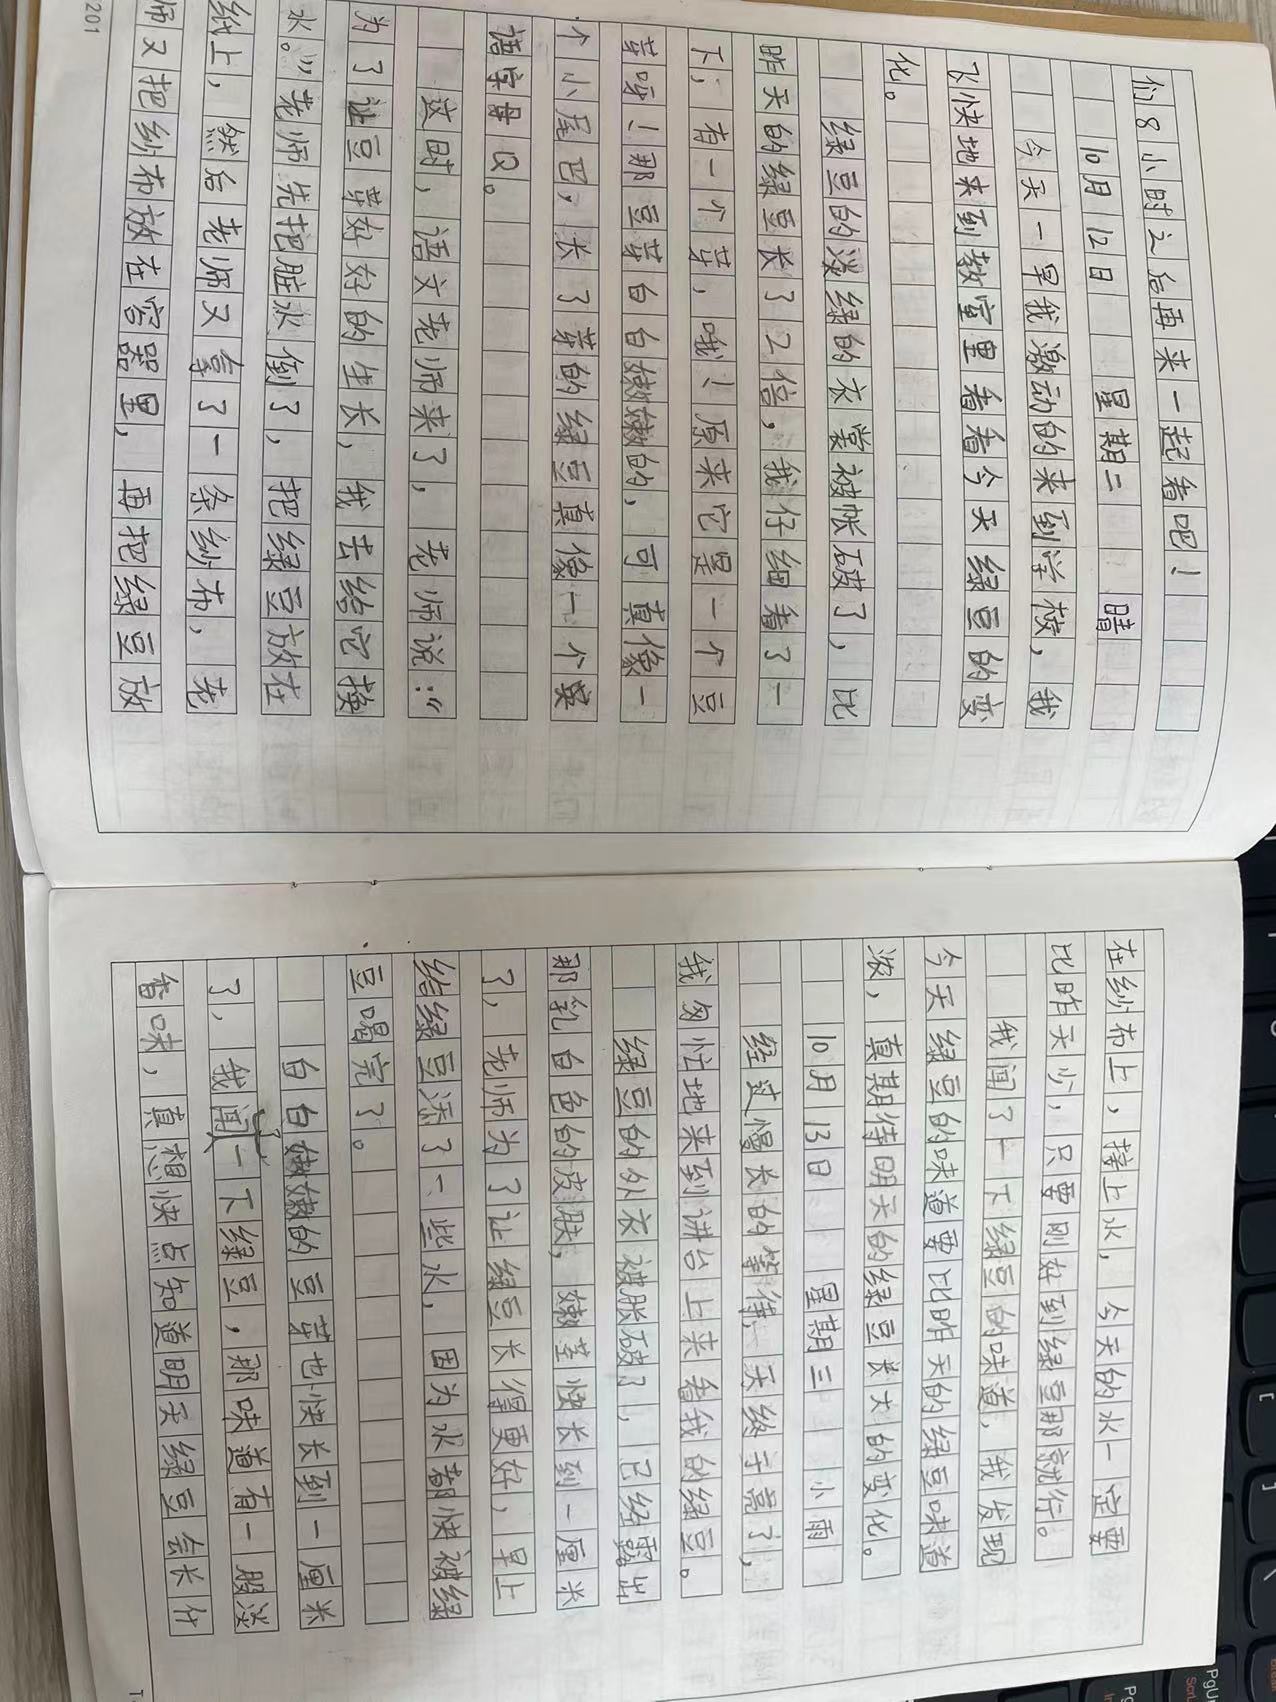 们8小时之后再来一起看吧！
10月12日 星期二 晴
今天一早我激动的来到学校，我
飞快地来到教室里看看今天绿豆的变
化。
绿豆的淡绿的衣裳被帐破了，比
昨天的绿豆长了2倍，我仔细看了一
下，有一个芽，哦！原来它是一个豆
芽呀！那豆芽白白嫩嫩的，可真像一
个小尾巴，长了芽的绿豆真像一个英
语字母Q。
这时，语文老师来了，老师说：“
为了让豆芽好好的生长，我去给它换
水。”老师先把脏水倒了，把绿豆放在
纸上，然后老师又拿了一条纱布，老
师又把纱布放在容器里，再把绿豆放
201
在纱布上，接上水，今天的水一定要
比昨天少，只要刚好到绿豆那就行。
我闻了一下绿豆的味道，我发现
今天绿豆的味道要比昨天的绿豆味道
浓，真期待明天的绿豆长大的变化。
10月13日 星期三 小雨
经过慢长的等待，天终于亮了，
我匆忙地来到讲台上来看我的绿豆。
绿豆的外衣被胀破了，已经露出
那乳白色的皮肤，嫩茎快长到一厘米
了，老师为了让绿豆长得更好，早上
给绿豆添了一些水，因为水都快被绿
豆喝完了。
白白嫩嫩的豆芽也快长到一厘米
了，我闻一下绿豆，那味道有一股淡
香味，真想快点知道明天绿豆会长什
PgU
PgU